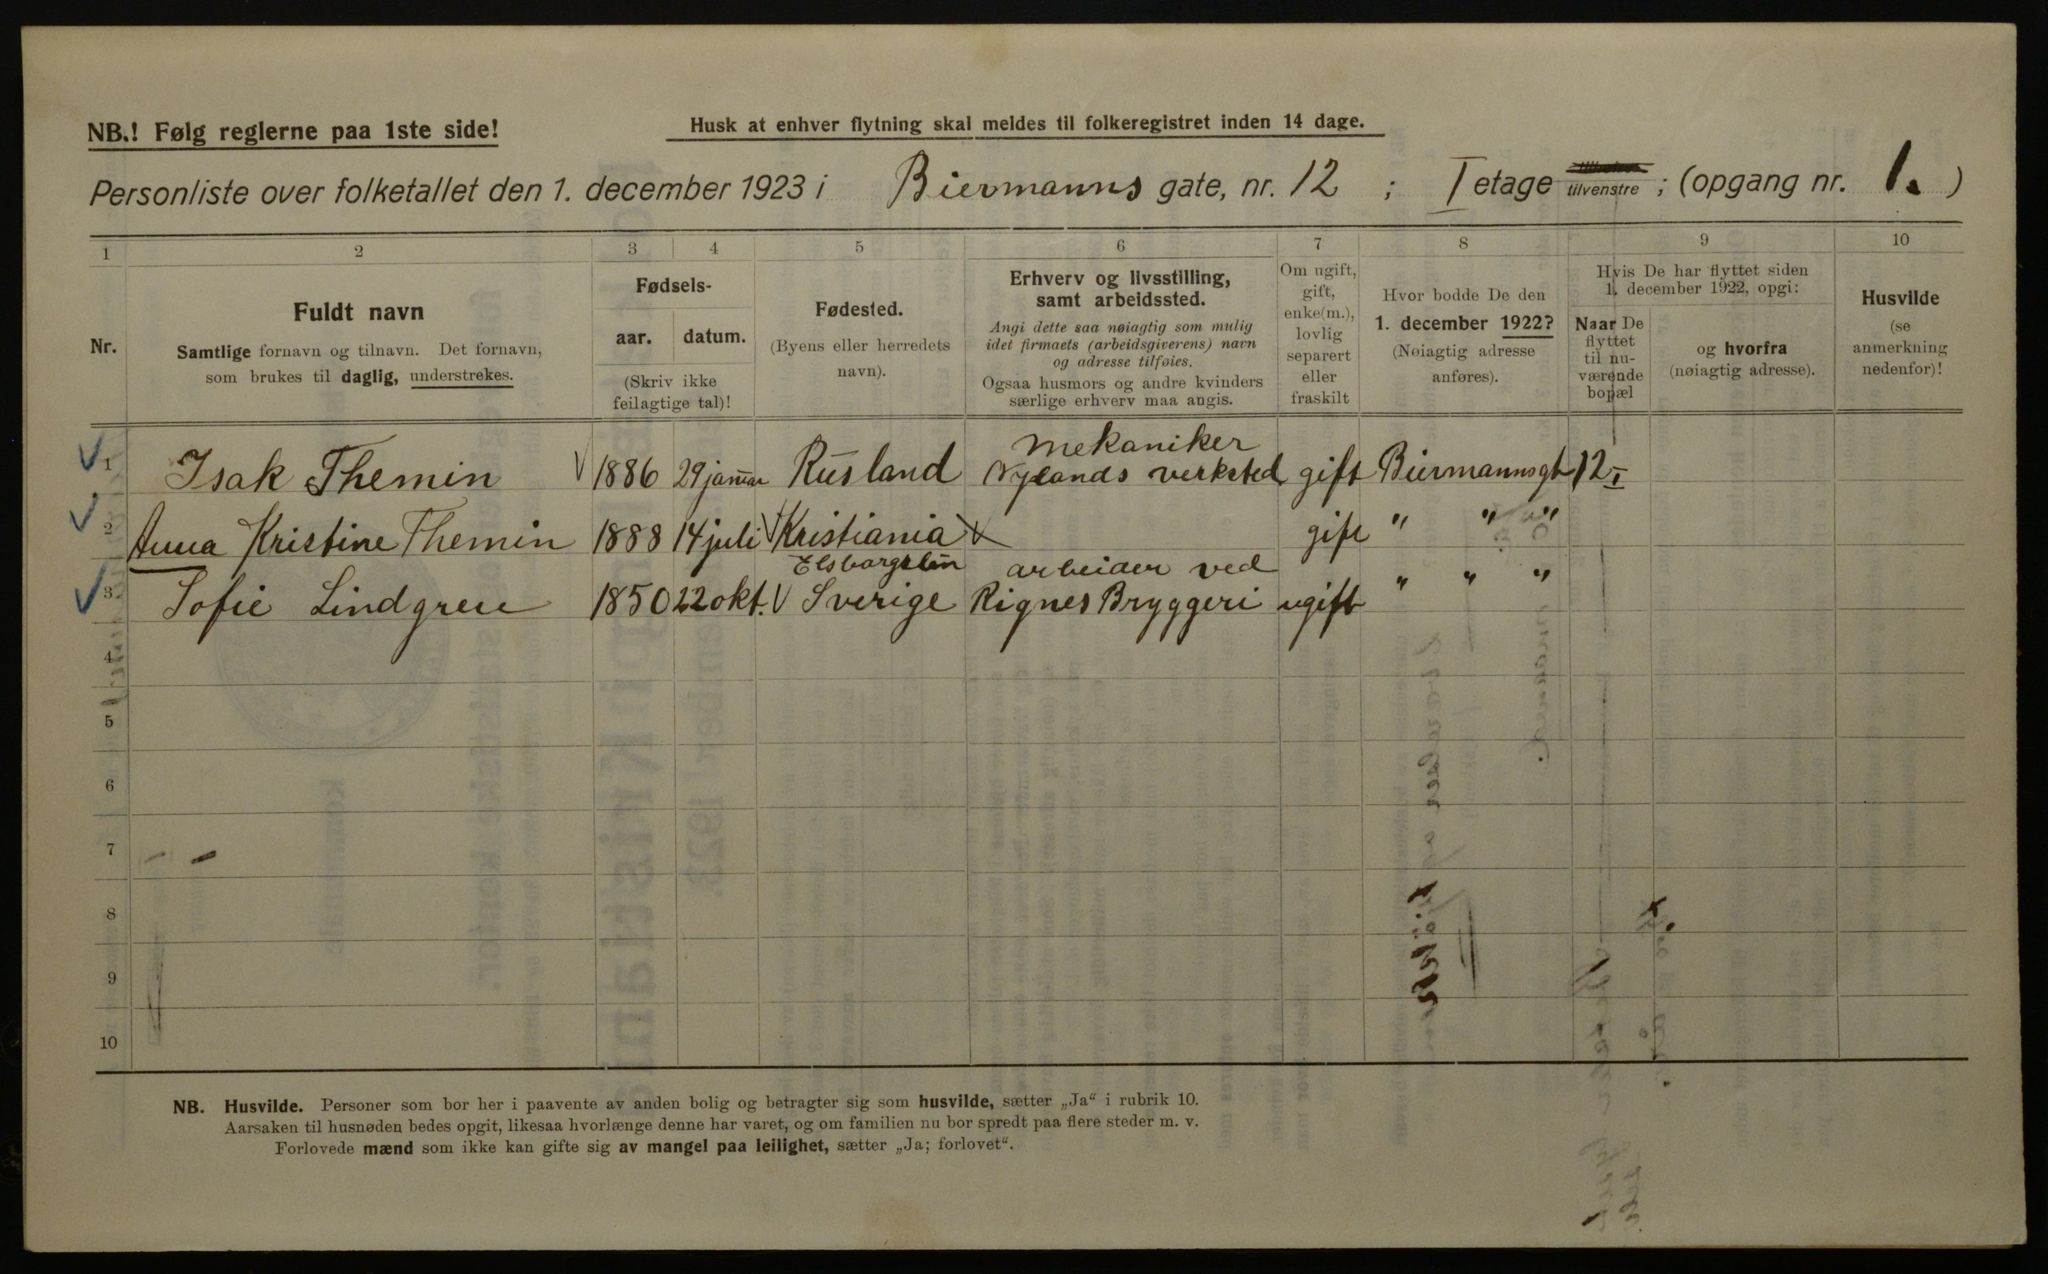 NB.! Følg reglerne paa 1ste side!
Husk at enhver flytning skal meldes til folkeregistret inden 14 dage.
Personliste over folketallet den 1. december 1923 i Biermanns gate, nr. 12 ; I etage tilvenstre ; (opgang nr. 1. )
1 2 3 4 5 6 7 8 9 10
Nr.
Fuldt navn
Samtlige fornavn og tilnavn. Det fornavn,
som brukes til daglig, understrekes.
Fødsels-
aar. datum.
(Skriv ikke
feilagtige tal)!
Fødested.
(Byens eller herredets
navn).
Erhverv og livsstilling,
samt arbeidssted.
Angi dette saa nøiagtig som mulig
idet firmaets (arbeidsgiverens) navn
og adresse tilføies.
Ogsaa husmors og andre kvinders
særlige erhverv maa angis.
Om ugift,
gift,
enke(m.),
lovlig
separert
eller
fraskilt
Hvor bodde De den
1. december 1922?
(Nøiagtig adresse
anføres).
Hvis De har flyttet siden
1. december 1922, opgi:
Naar De
flyttet
til nu-
værende
bopæl
og hvorfra
(nøiagtig adresse).
Husvilde
(se
anmerkning
nedenfor)!
mekaniker
1 Isak Themin 1886 29 januar Rusland Nylands verksted gift Biermannsgt 12 I
2 Anna Kristine Themin 1888 14 juli Kristiania gift " " "
arbeider ved
3 Sofie Lindgren 1850 22 okt. Sverige Rignes Bryggeri ugift " " "
4
5
6
7
8
9
10
NB. Husvilde. Personer som bor her i paavente av anden bolig og betragter sig som husvilde, sætter „Ja“ i rubrik 10.
Aarsaken til husnøden bedes opgit, likesaa hvorlænge denne har varet, og om familien nu bor spredt paa flere steder m. v.
Forlovede mænd som ikke kan gifte sig av mangel paa leilighet, sætter „Ja; forlovet“.